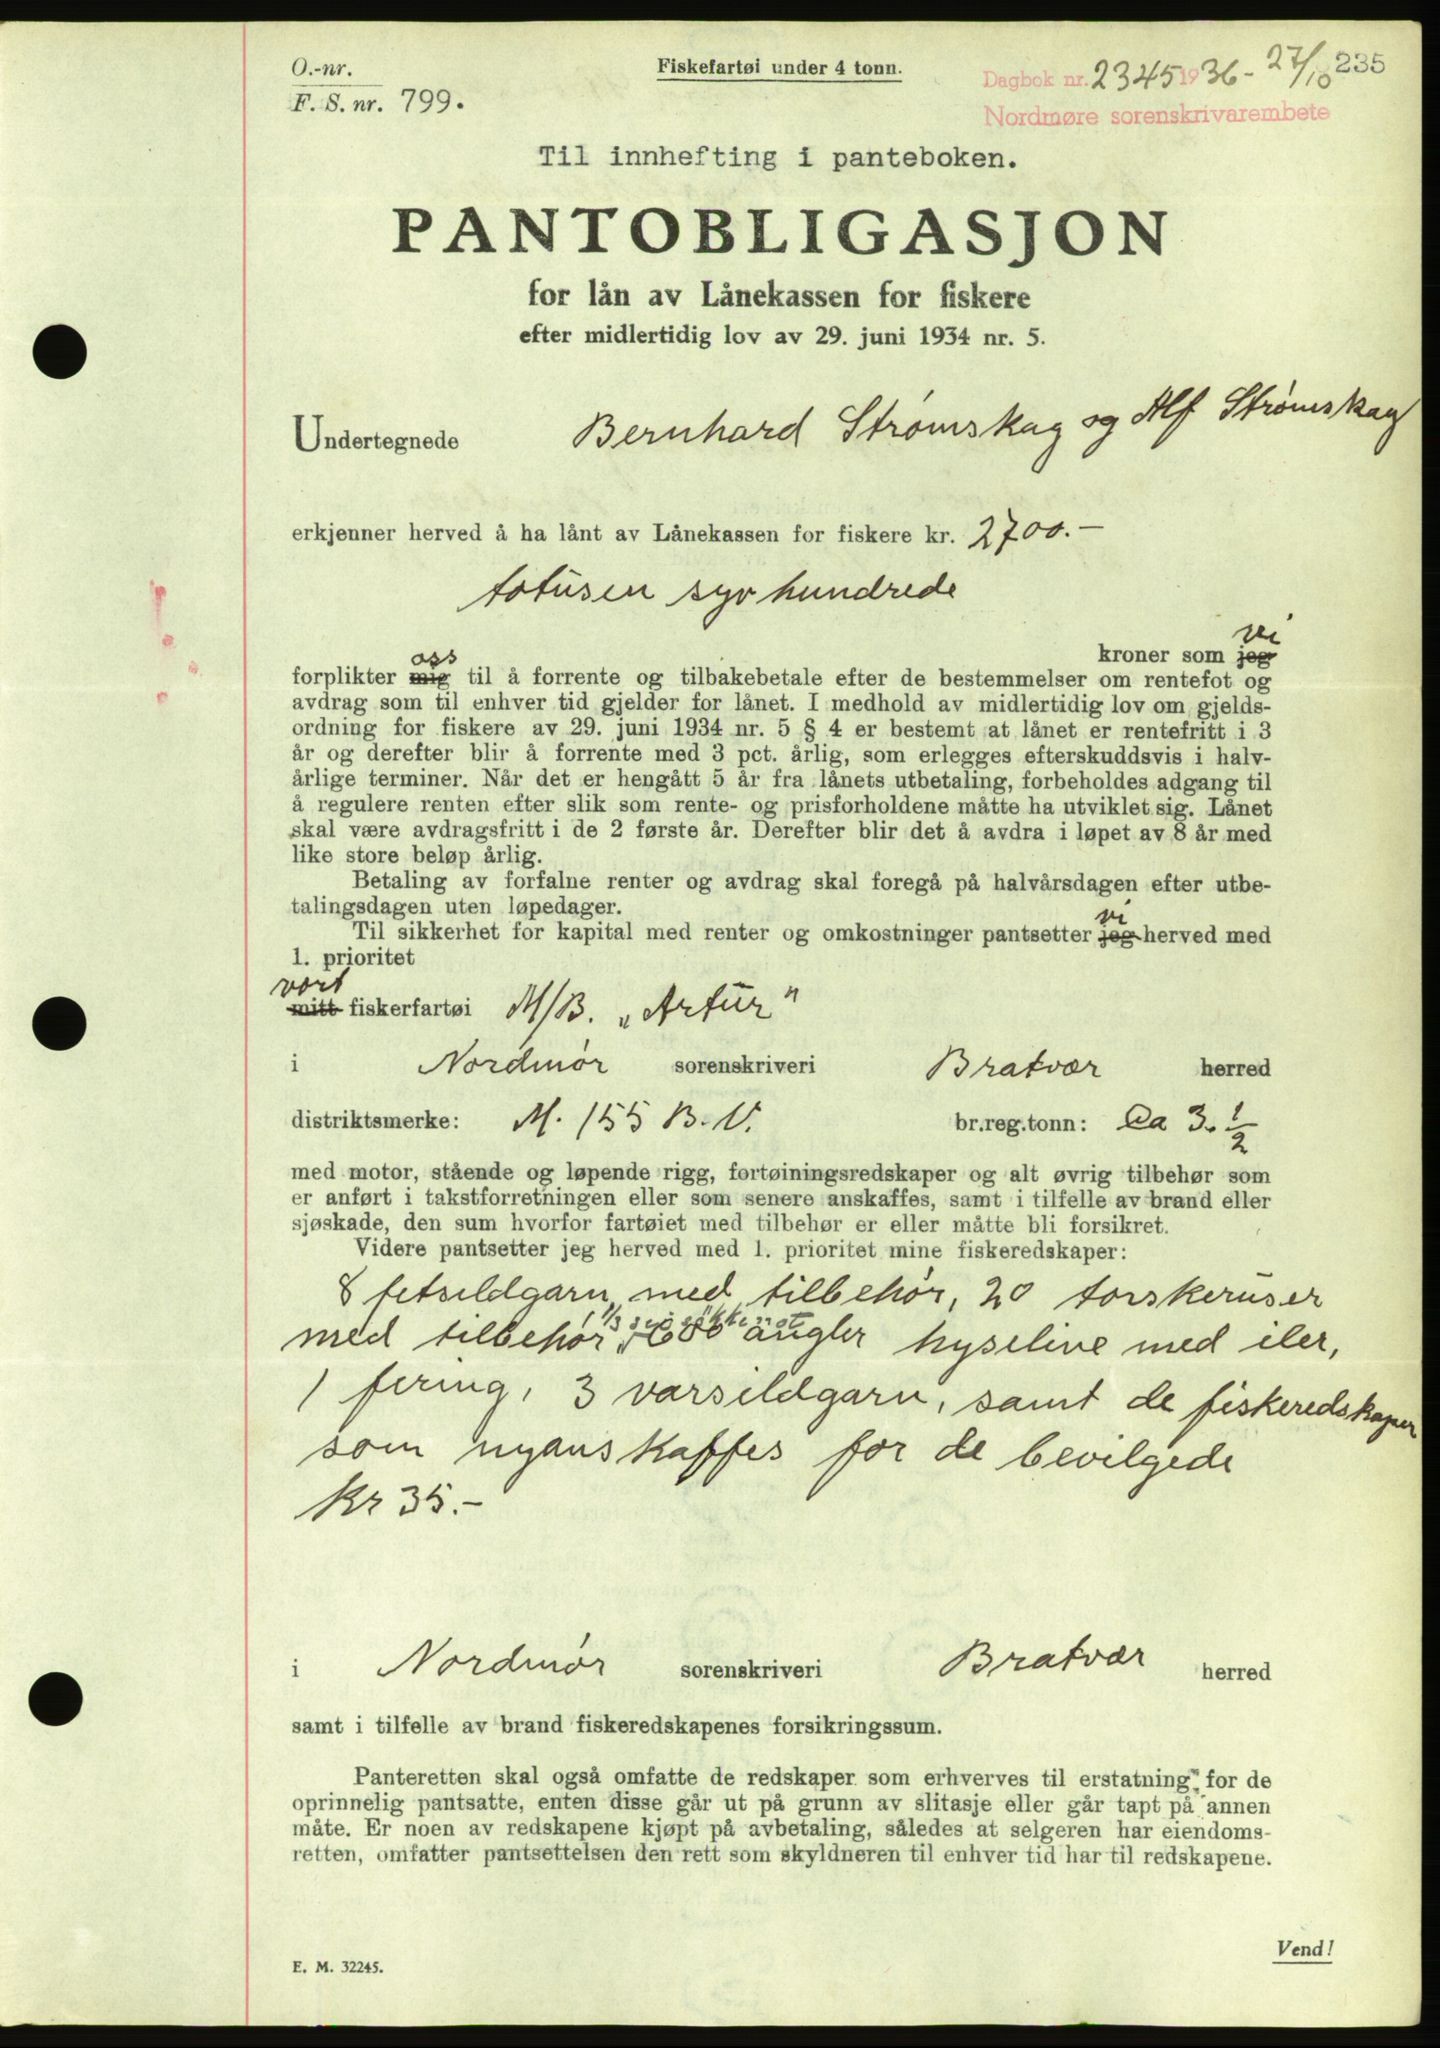 O.-nr.
F. S. nr. 799.
Fiskefartøi under 4 tonn.
Dagbok nr. 2345 1936 - 27/10 235
Nordmøre sorenskrivarembete
Til innhefting i panteboken.
PANTOBLIGASJON
for lån av Lånekassen for fiskere
efter midlertidig lov av 29. juni 1934 nr. 5.
Undertegnede Bernhard Strømskag og Alf Strømskag
erkjenner herved å ha lånt av Lånekassen for fiskere kr. 2700.-
totusen syv hundrede
vi
kroner som jeg
oss
forplikter mig til å forrente og tilbakebetale efter de bestemmelser om rentefot og
avdrag som til enhver tid gjelder for lånet. I medhold av midlertidig lov om gjelds-
ordning for fiskere av 29. juni 1934 nr. 5 § 4 er bestemt at lånet er rentefritt i 3
år og derefter blir å forrente med 3 pct. årlig, som erlegges efterskuddsvis i halv-
årlige terminer. Når det er hengått 5 år fra lånets utbetaling, forbeholdes adgang til
å regulere renten efter slik som rente- og prisforholdene måtte ha utviklet sig. Lånet
skal være avdragsfritt i de 2 første år. Derefter blir det å avdra i løpet av 8 år med
like store beløp årlig.
Betaling av forfalne renter og avdrag skal foregå på halvårsdagen efter utbe-
talingsdagen uten løpedager.
vi
Til sikkerhet for kapital med renter og omkostninger pantsetter jeg herved med
1. prioritet
vort
mitt fiskerfartøi M/B. „Artur"
i Nordmør sorenskriveri Bratvær herred
distriktsmerke: M. 155 B.V. br.reg.tonn: Ca 3. 1/2
med motor, stående og løpende rigg, fortøiningsredskaper og alt øvrig tilbehør som
er anført i takstforretningen eller som senere anskaffes, samt i tilfelle av brand eller
sjøskade, den sum hvorfor fartøiet med tilbehør er eller måtte bli forsikret.
Videre pantsetter jeg herved med 1. prioritet mine fiskeredskaper:
8 fetsildgarn med tilbehør, 20 torskeruser
1/3
med tilbehør, 600 angler hyseline med iler,
1 fering, 3 vårsildgarn, samt de fiskeredskaper
som nyanskaffes for de bevilgede
kr 35.-
i Nordmør sorenskriveri Bratvær herred
samt i tilfelle av brand fiskeredskapenes forsikringssum.
Panteretten skal også omfatte de redskaper som erhverves til erstatning for de
oprinnelig pantsatte, enten disse går ut på grunn av slitasje eller går tapt på annen
måte. Er noen av redskapene kjøpt på avbetaling, således at selgeren har eiendoms-
retten, omfatter pantsettelsen den rett som skyldneren til enhver tid har til redskapene.
Vend!
E. M. 32245.